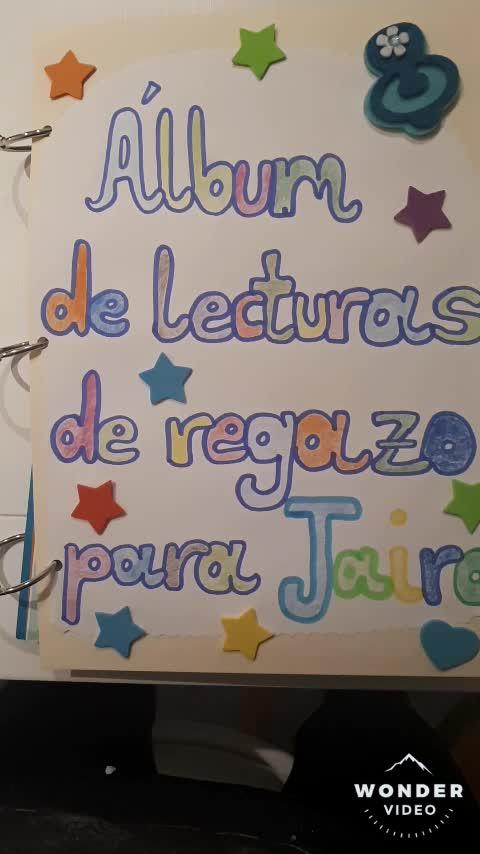 Álbum
de lecturas
de regazo
para Jairo
WONDER
VIDEO